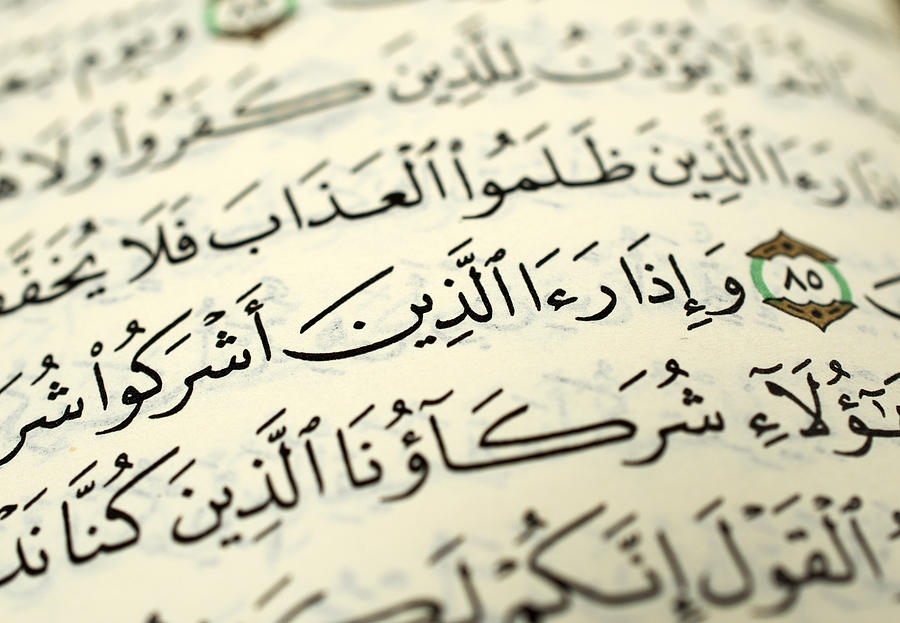 وَيَوْمَ
لَا يُؤْذَنُ لِلَّذِينَ كَفَرُوا۟ وَلَا
رَءَا ٱلَّذِينَ ظَلَمُوا۟ ٱلْعَذَابَ فَلَا يُخَفَّ
٨٥ وَإِذَا رَءَا ٱلَّذِينَ أَشْرَكُوا۟ شُرَ
ؤُلَآءِ شُرَكَآؤُنَا ٱلَّذِينَ كُنَّا نَدْ
ٱلْقَوْلَ إِنَّكُمْ لَكَ